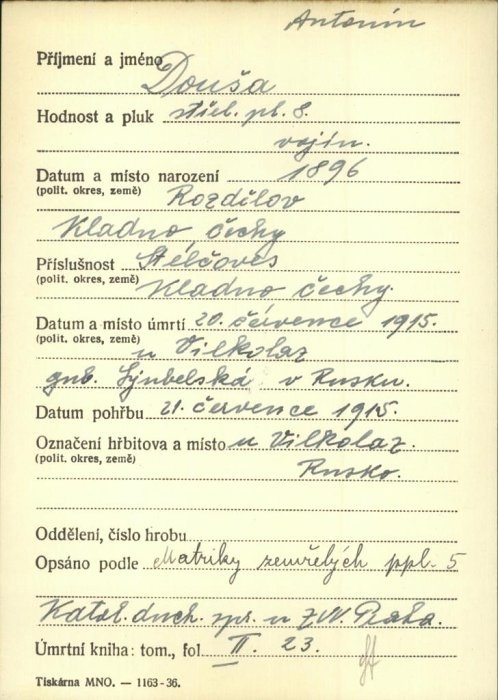 Antonín
Příjmení a jméno Douša
Hodnost a pluk střel. pl. 8.
vojín.
Datum a místo narození 1896
(polit. okres, země) Rozdělov
Kladno čechy
Příslušnost Stelčoves
(polit. okres, země) Kladno čechy.
Datum a místo úmrtí 20. července 1915.
(polit. okres, země) u Vilkolaz
gub. Ljubelská v Rusku.
Datum pohřbu 21. července 1915.
Označení hřbitova a místo u Vilkolaz.
(polit. okres, země) Rusko.
Oddělení, číslo hrobu
Opsáno podle Matriky zemřelých ppl. 5
Katol. duch. spr. u Z.V. Praha.
Úmrtní kniha: tom., fol. II. 23.
Tiskárna MNO. — 1163-36.